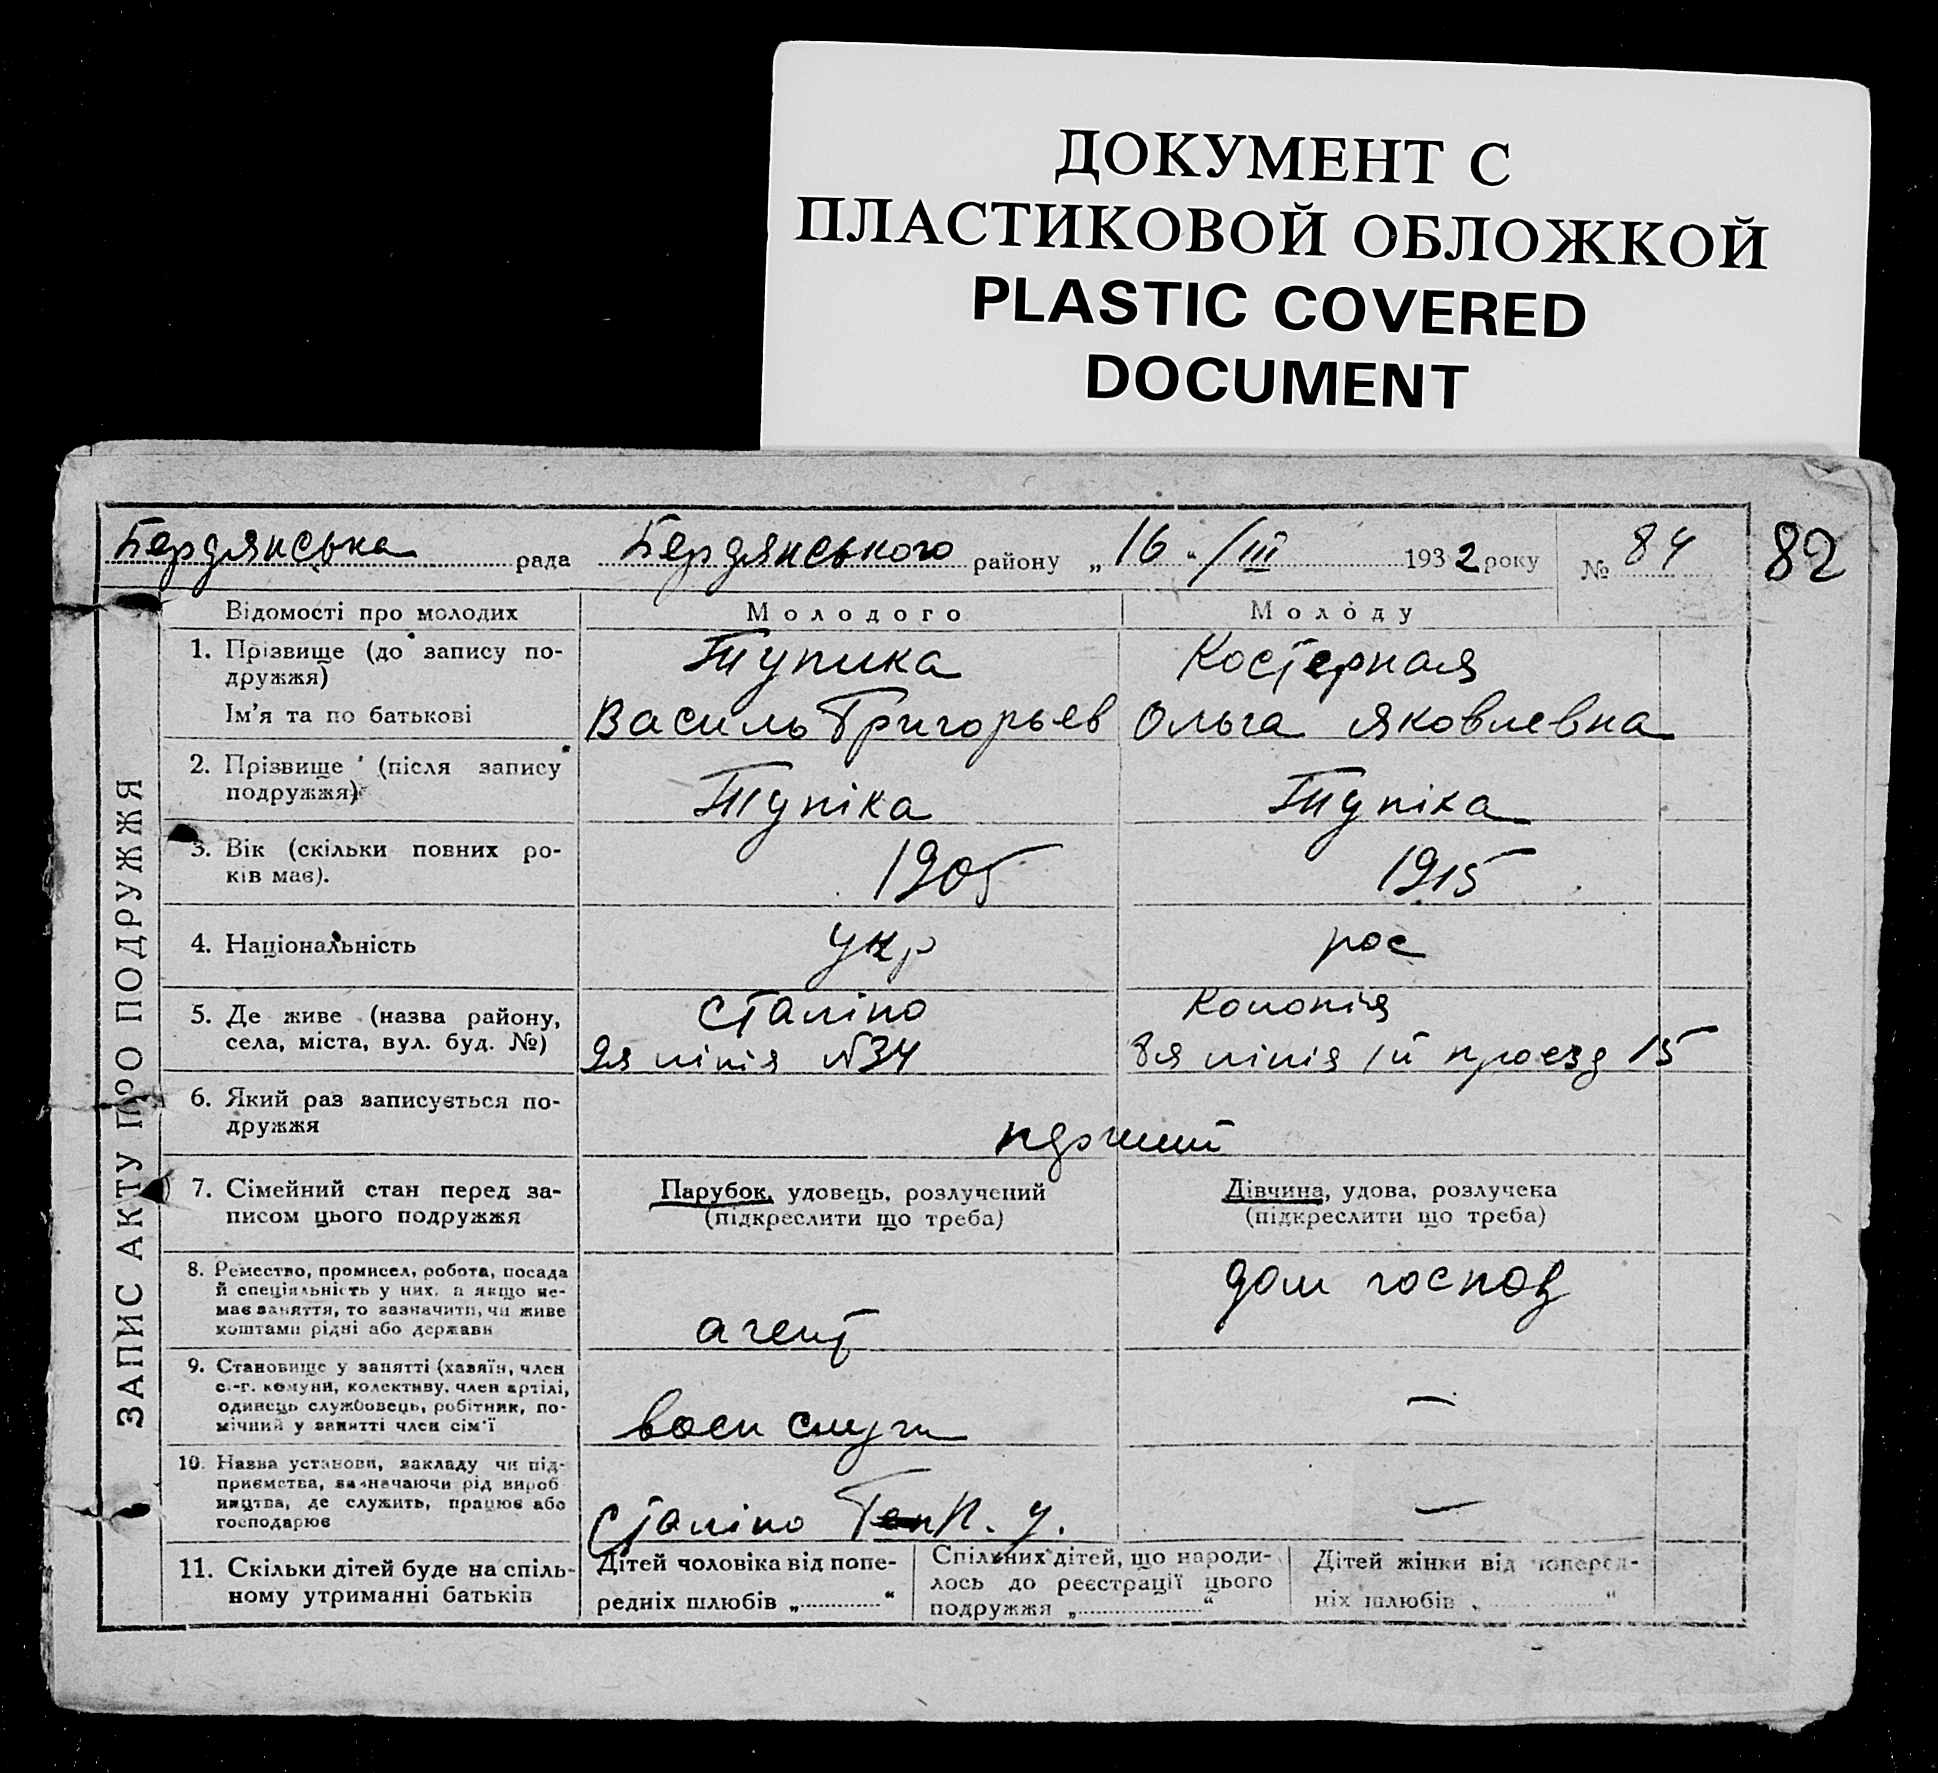 ДОКУМЕНТ С
ПЛАСТИКОВОЙ ОБЛОЖКОЙ
PLASTIC COVERED
DOCUMENT
Бердянська рада Бердянського району „16“ /III 1932 року № 84 82
ЗАПИС АКТУ ПРО ПОДРУЖЖЯ
Відомості про молодих Молодого Молоду
1. Прізвище (до запису по-
дружжя) Тупика Костерная
Ім'я та по батькові Василь Григорьев Ольга Яковлевна
2. Прізвище (після запису
подружжя) Тупіка Тупіка
3. Вік (скільки повних ро-
ків має). 1905 1915
4. Національність укр рос
5. Де живе (назва району, Сталіно Колонія
села, міста, вул. буд. №) 9я лінія №34 8я лінія 1й проезд 15
6. Який раз записується по-
дружжя
7. Сімейний стан перед за- Парубок, удовець, розлучений Дівчина, удова, розлучена
писом цього подружжя (підкреслити що треба) (підкреслити що треба)
8. Ремество, промисел, робота, посада
й спеціяльність у них, а якщо не- дом господ
має заняття, то зазначити, чи живе
коштами рідні або держави агент
9. Становище у занятті (хазяїн, член
с.-г. комуни, колективу, член артілі,
одинець службовець, робітник, по- —
мічний у занятті член сім'ї
10. Назва установи, закладу чи під-
приємства, зазначаючи рід вироб
ництва, де служить, працює або —
господарює Сталіно П. У.
11. Скільки дітей буде на спіль-
ному утриманні батьків
Дітей чоловіка від попе-
редніх шлюбів „ “
Спільних дітей, що народи-
лось до реєстрації цього
подружжя „ “
Дітей жінки від поперед-
ніх шлюбів „ “